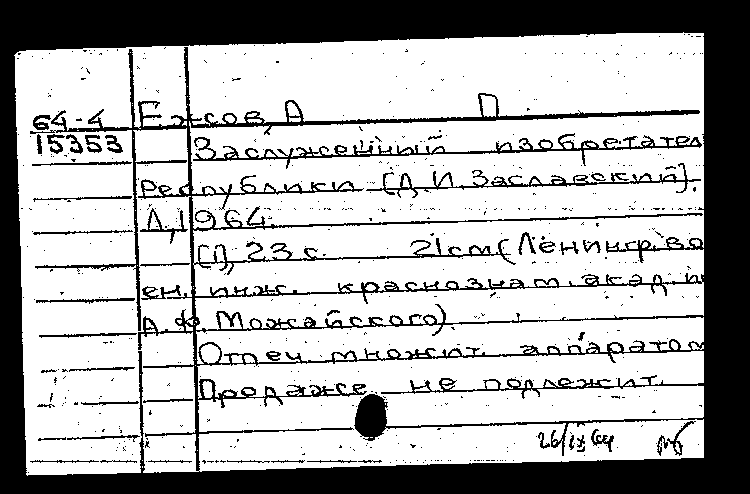 64-4 Ежов, А П
15353 Заслуженный изобретател
Республики [Д. И. Заславский].
Л, 1964.
[1], 23 с. 21см (Ленингр. во
ен. инж. краснознам. акад. и
А. Ф. Можайского).
Отпеч. множит. аппаратом
Продаже не подлежит.
26/IX 64